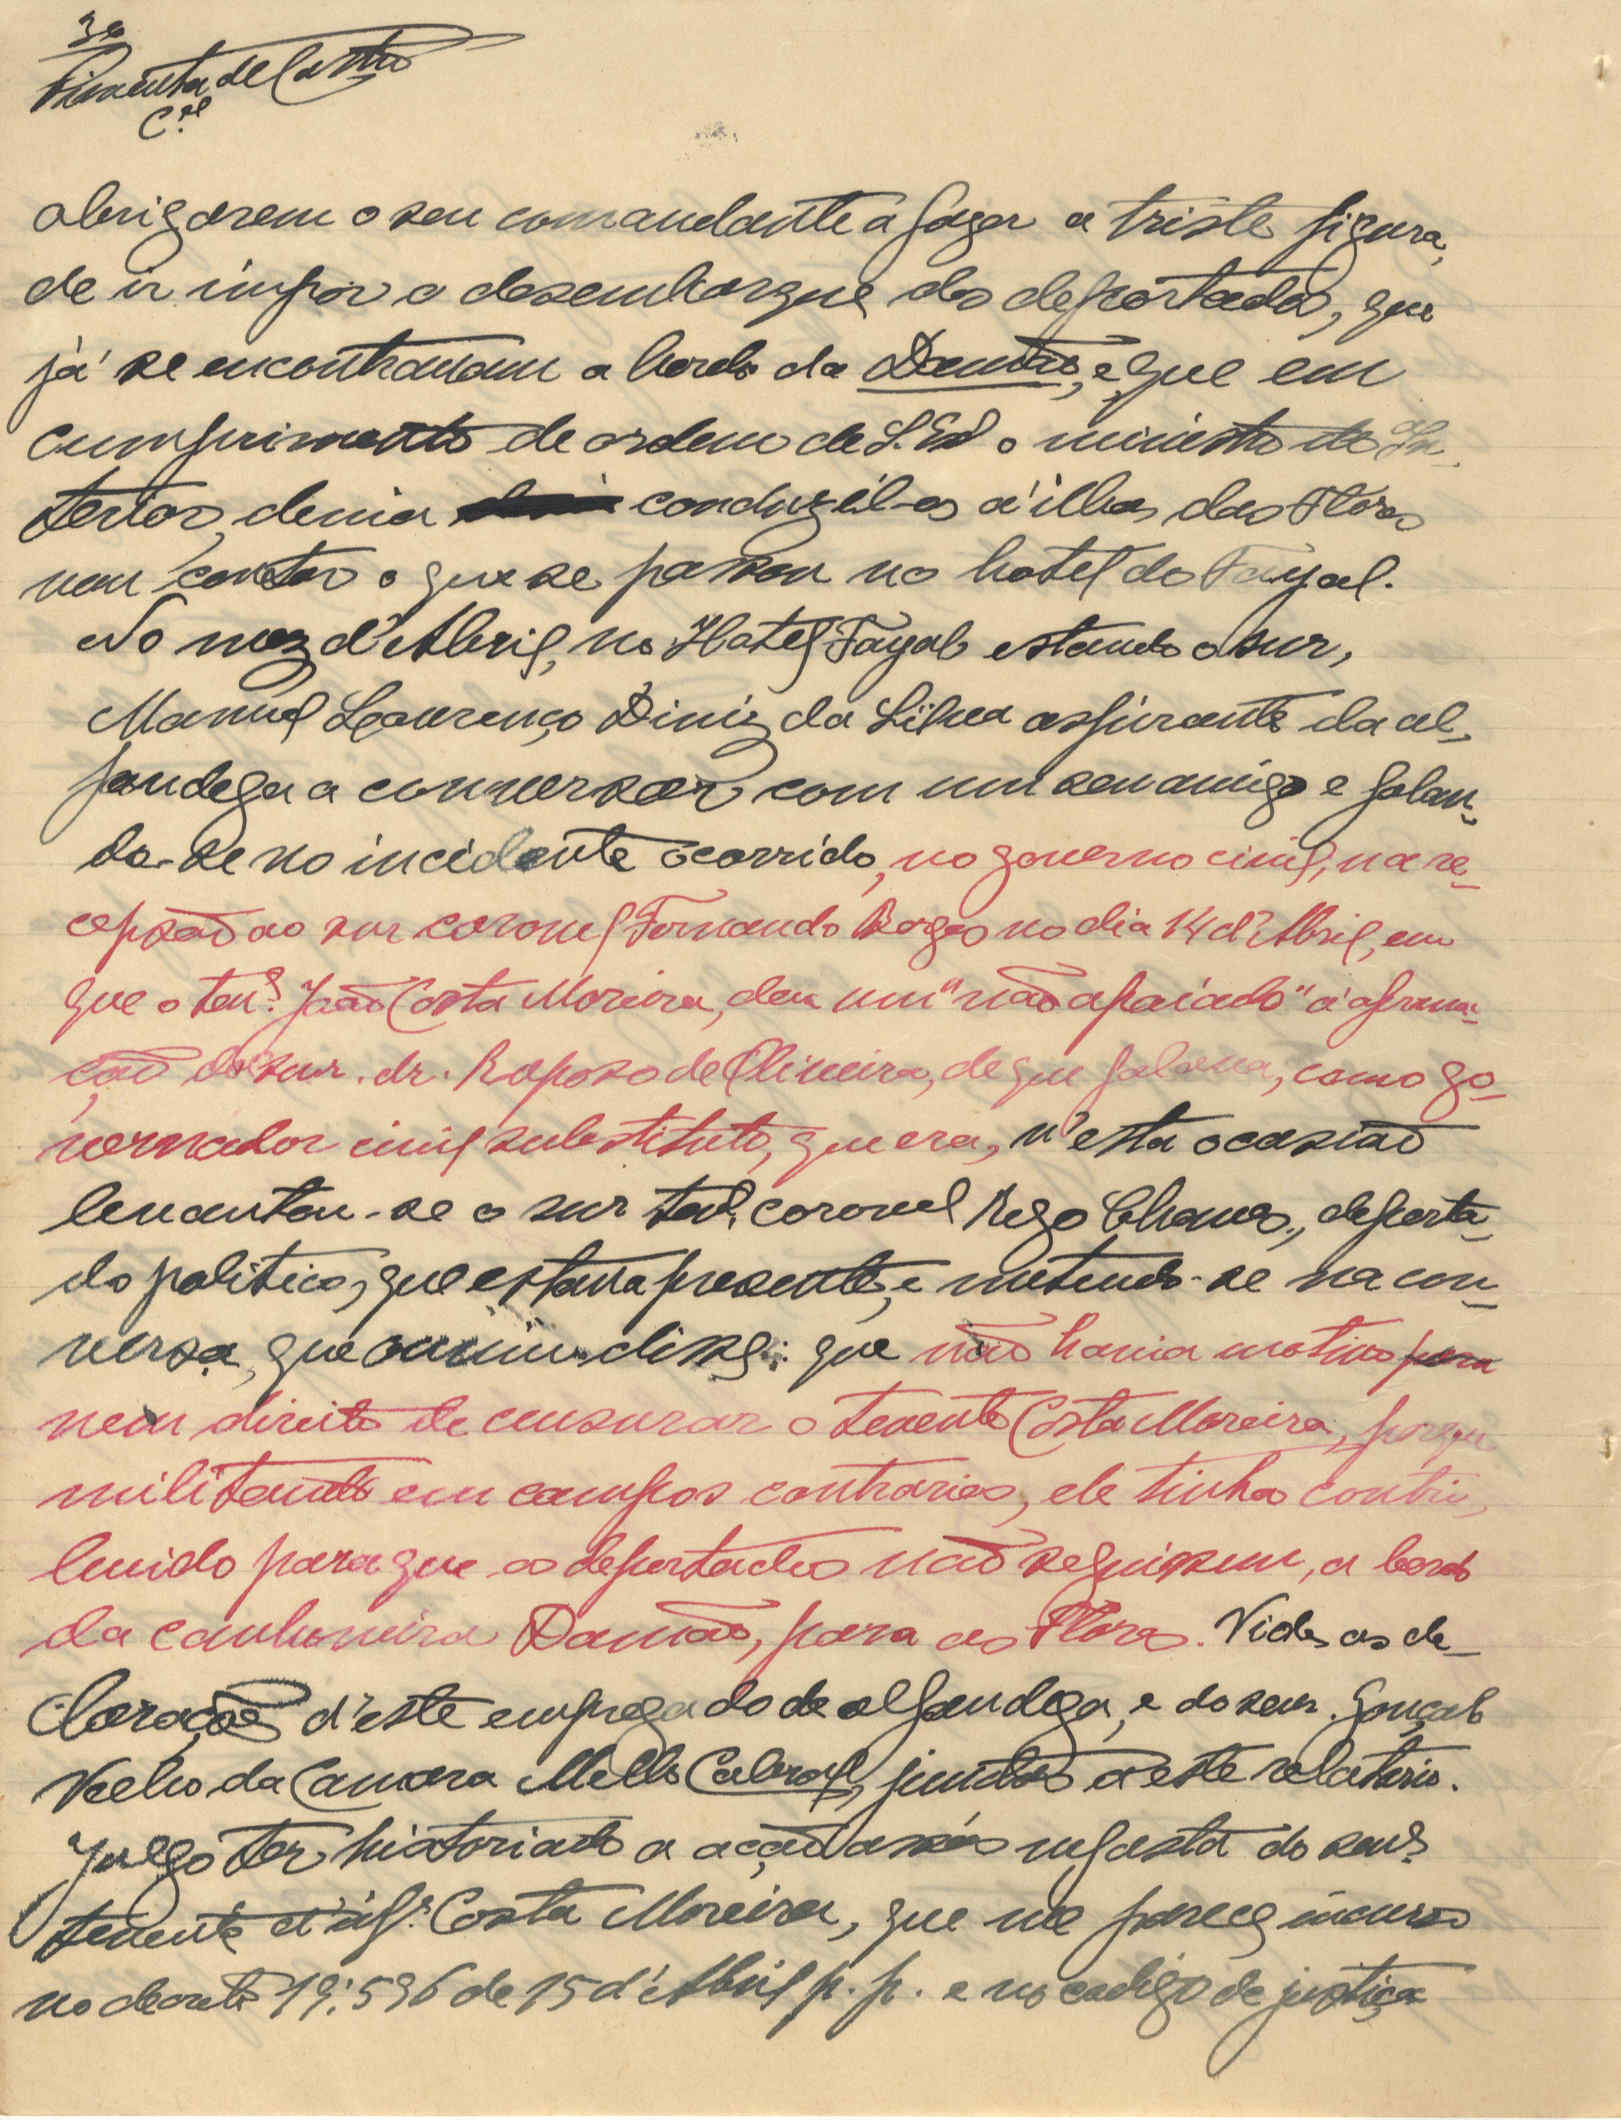 3º
Pimenta de Castro
C.el
obrigarem o seu comandante a fazer a triste figura,
de ir impôr o desembarque dos deportados, que
já se encontravam a bordo da Damão, e que em
cumprimento de ordem de S. Exª o ministro do In-
terior, devia conduzil-os á ilha das Flores
vou contar o que se passou no hotel do Fayal.
No mez d'Abril, no Hotel Fayal estando o snr,
Manuel Lourenço Diniz da Silva aspirante da al-
fandega a conversar com um seu amigo e falan-
do-se no incidente ocorrido, no governo civil, na re-
cepsão ao snr coronel Fernando Borges no dia 14 d'Abril, em
que o ten.e João Costa Moreira, deu um "não apoiado" á afirma-
ção do snr. dr. Raposo de Oliveira, de que falava, como go-
vernador civil substituto, que era, n'esta ocasião
levantou-se o snr ten. coronel Rego Chaves, deporta-
do politico, que estava presente, e metendo-se na con-
versa, que ouviu disse: que não havia motivo para
nem direito de censurar o tenente Costa Moreira, porque
militando em campos contrarios, ele tinha contri-
buido para que os deportados não seguissem, a bordo
da canhoneira Damão, para as Flores. Vide as de-
clarações d'este empregado de alfandega, e do snr. Gonçalo
Velho da Camara Mello Cabral, juntas a este relatorio.
Julgo ter historiado a acção assás nefasta do snr.
tenente d'inf.ª Costa Moreira, que me parece incurso
no decreto 19:596 de 15 d'Abril p. p. e no codigo de justiça